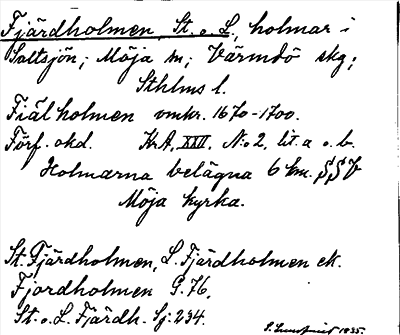 Fjärdholmen, St. o. L., holmar i
Saltsjön; Möja sn; Värmdö skg;
Sthlms l.
Fiälholmen omkr. 1670-1700.
Förf. okd. KrA, XXII, N:o 2, lit. a o. b.
Holmarna belägna 6 km. SSV
Möja kyrka.
St. Fjärdholmen, L. Fjärdholmen ek.
Fjordholmen G. 76,
St. o. L. Fjärdh. Sj: 234.
1935.